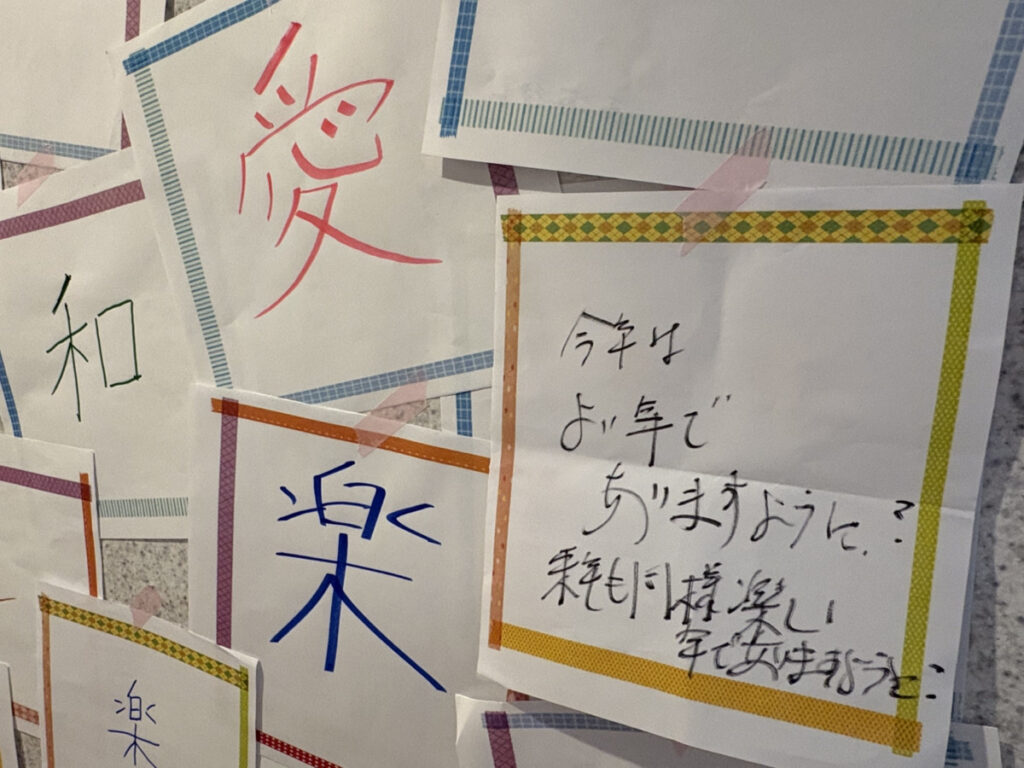 愛
和
楽
楽
今年は
よい年で
ありますように。?
来年も同様楽しい
年でありますように: